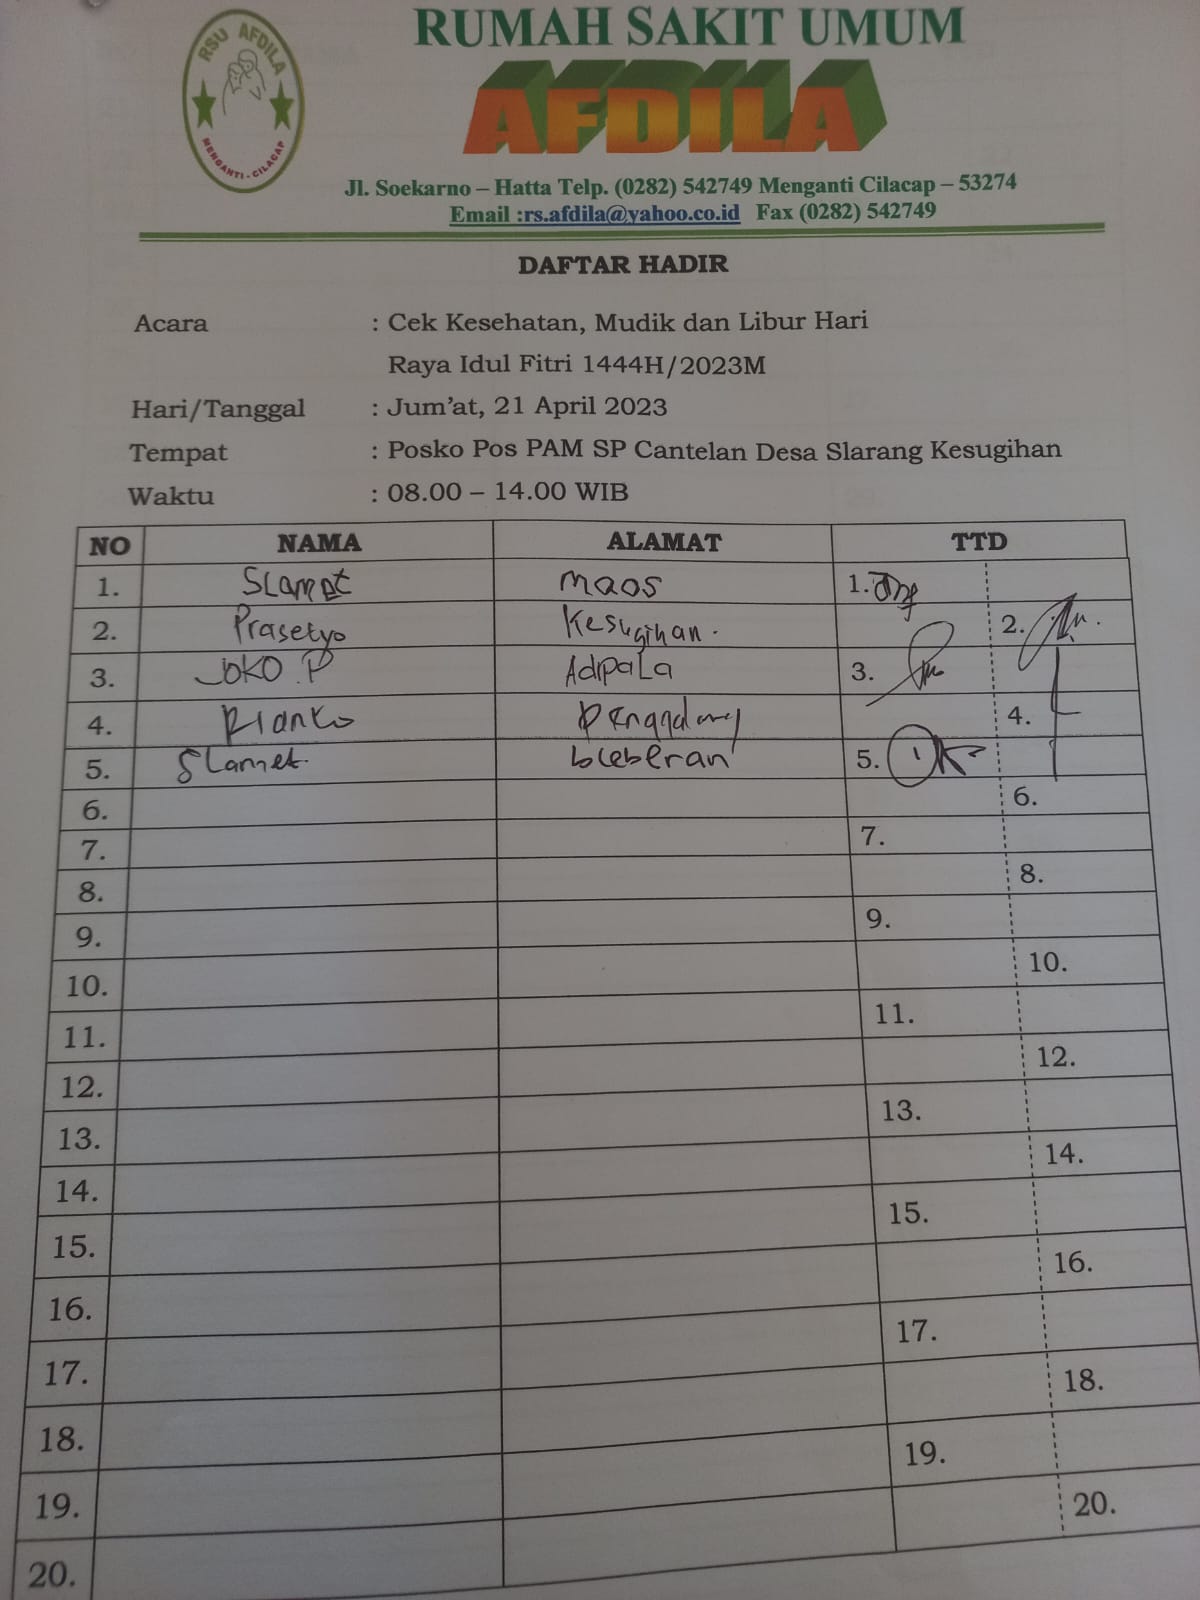 RSU AFDILA
MENGANTI - CILACAP
RUMAH SAKIT UMUM
AFDILA
Jl. Soekarno – Hatta Telp. (0282) 542749 Menganti Cilacap – 53274
Email :rs.afdila@yahoo.co.id Fax (0282) 542749
DAFTAR HADIR
Acara : Cek Kesehatan, Mudik dan Libur Hari
Raya Idul Fitri 1444H/2023M
Hari/Tanggal : Jum'at, 21 April 2023
Tempat : Posko Pos PAM SP Cantelan Desa Slarang Kesugihan
Waktu : 08.00 – 14.00 WIB
NO NAMA ALAMAT TTD
1. Slamet Maos 1.
2. Prasetyo Kesugihan. 2.
3. JOKO.P Adipala 3.
4. 4.
5. Slamet. bleberan 5.
6. 6.
7. 7.
8. 8.
9. 9.
10. 10.
11. 11.
12. 12.
13. 13.
14. 14.
15. 15.
16. 16.
17. 17.
18. 18.
19. 19.
20. 20.